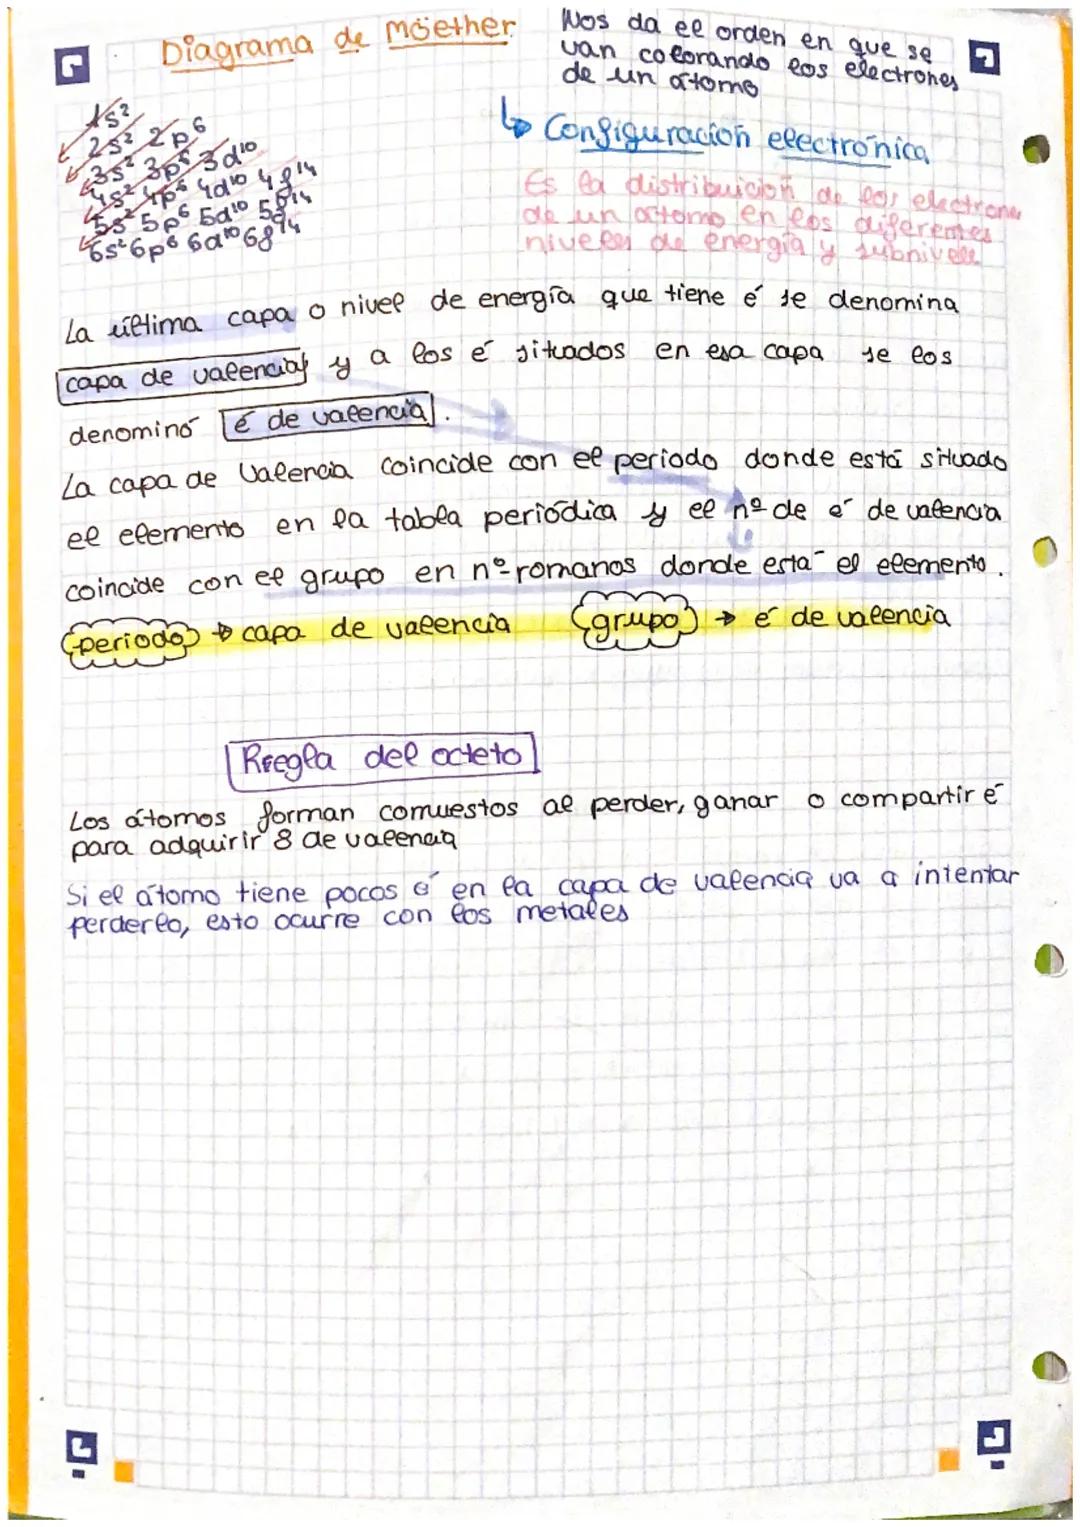 Diagrama de möether
Nos da el orden en que se
van colorando los electrones
de un átomo
1s² 
2s² 2p⁶
3s² 3p⁶ 3d¹⁰
4s² 4p⁶ 4d¹⁰ 4f¹⁴
5s² 5p⁶ 5d¹⁰ 5f¹⁴
6s² 6p⁶ 6d¹⁰ 6f¹⁴
↳ Configuración electrónica
Es la distribuicion de los electrone
de un actomo en los diferentes
niveles de energía y subnivele
La última capa o nivel de energía que tiene é se denomina
capa de valencia y a los é situados en esa capa se los
denominó é de valencia.
La capa de Valencia coincide con el periodo donde está situado
el elemento en la tabla periódica y el nº de é de valencia
coincide con el grupo en nº romanos donde está el elemento.
periodo → capa de valencia grupo → é de valencia
Rregla del octeto
Los átomos forman comuestos al perder, ganar o compartir é
para adquirir 8 de valencia
Si el átomo tiene pocos é en la capa de valencia va a intentar
perderlo, esto ocurre con los metales